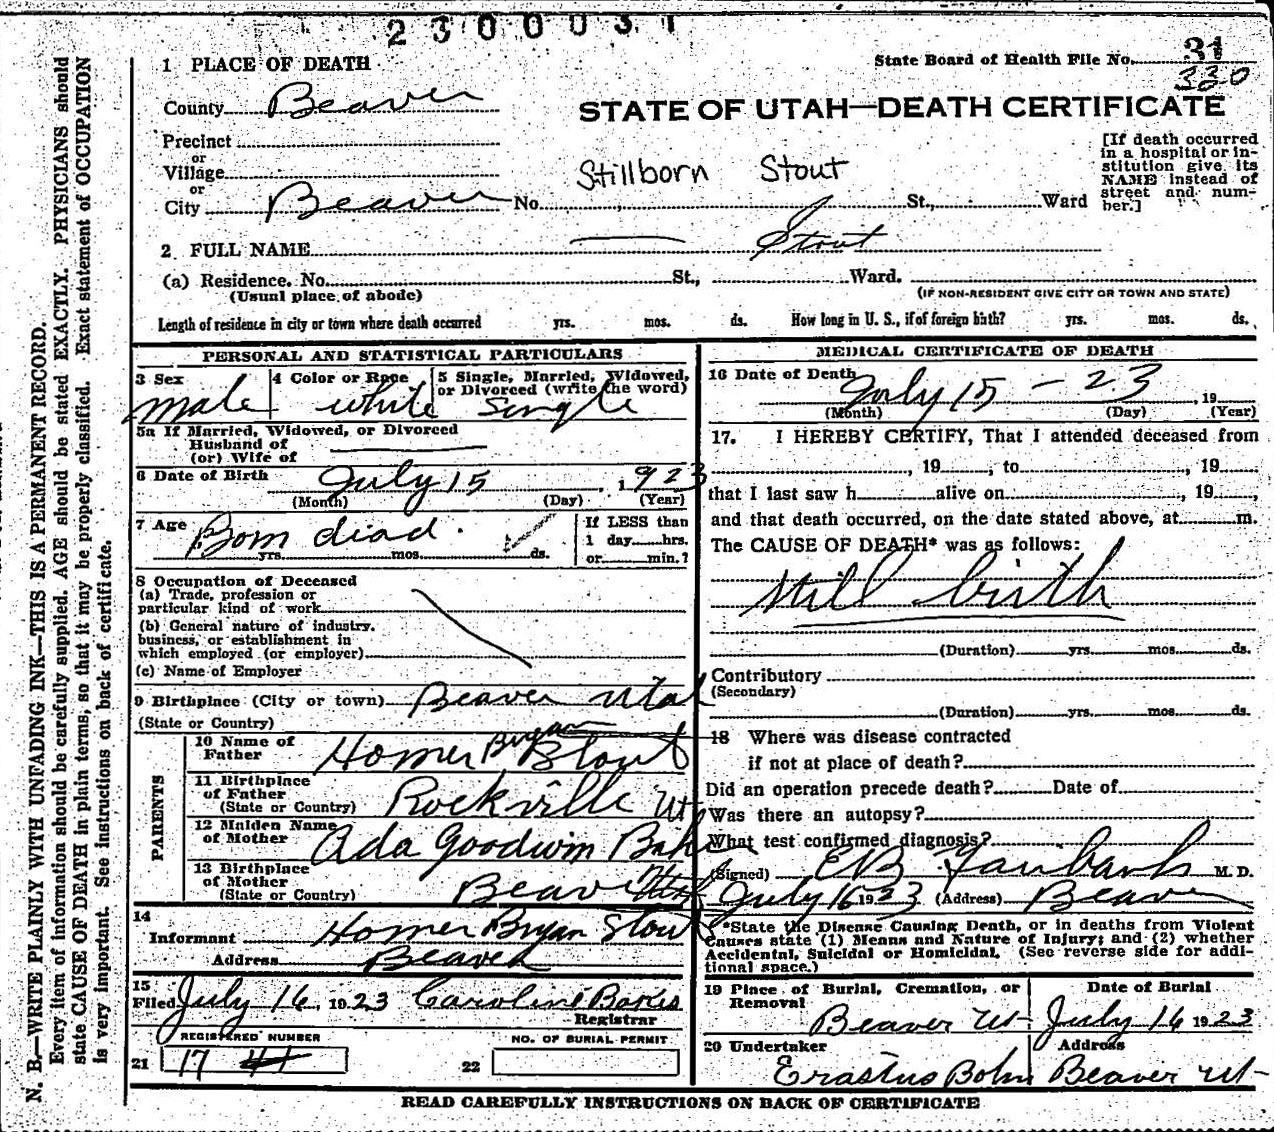 2300031
State Board of Health File No. 31
330
1 PLACE OF DEATH
County Beaver
STATE OF UTAH—DEATH CERTIFICATE
Precinct
or
Village
or
City Beaver No. St., Ward
Stillborn Stout
[If death occurred
in a hospital or in-
stitution give its
NAME instead of
street and num-
ber.]
2 FULL NAME Stout
(a) Residence. No. St., Ward.
(Usual place of abode) (IF NON-RESIDENT GIVE CITY OR TOWN AND STATE)
Length of residence in city or town where death occurred yrs. mos. ds. How long in U. S., if of foreign birth? yrs. mos. ds.
PERSONAL AND STATISTICAL PARTICULARS
3 Sex 4 Color or Race 5 Single, Married, Widowed,
or Divorced (write the word)
male white single
5a If Married, Widowed, or Divorced
Husband of
(or) Wife of
6 Date of Birth July 15, 1923
(Month) (Day) (Year)
7 Age Born diad. If LESS than
yrs. mos. ds. 1 day hrs.
or min.?
8 Occupation of Deceased
(a) Trade, profession or
particular kind of work
(b) General nature of industry,
business, or establishment in
which employed (or employer)
(c) Name of Employer
9 Birthplace (City or town) Beaver Utah
(State or Country)
PARENTS
10 Name of
Father Homer Bryan Stout
11 Birthplace
of Father
(State or Country) Rockville Ut
12 Maiden Name
of Mother Ada Goodwin
13 Birthplace
of Mother
(State or Country) Beaver Utah
14
Informant Homer Bryan Stout
Address Beaver
15
Filed July 16, 1923 Caroline
Registrar
REGISTERED NUMBER NO. OF BURIAL PERMIT
21 17 41 22
MEDICAL CERTIFICATE OF DEATH
16 Date of Death July 15 - 23, 19
(Month) (Day) (Year)
17. I HEREBY CERTIFY, That I attended deceased from
, 19, to , 19
that I last saw h alive on , 19,
and that death occurred, on the date stated above, at m.
The CAUSE OF DEATH* was as follows:
Still birth
(Duration) yrs. mos. ds.
Contributory
(Secondary)
(Duration) yrs. mos. ds.
18 Where was disease contracted
if not at place of death?
Did an operation precede death? Date of
Was there an autopsy?
What test confirmed diagnosis?
(Signed) M. D.
July 16 1923 (Address) Beaver
*State the Disease Causing Death, or in deaths from Violent
Causes state (1) Means and Nature of Injury; and (2) whether
Accidental, Suicidal or Homicidal. (See reverse side for addi-
tional space.)
19 Place of Burial, Cremation, or
Removal Date of Burial
Beaver Ut July 16 1923
20 Undertaker Address
Erastus Bohn Beaver Ut
READ CAREFULLY INSTRUCTIONS ON BACK OF CERTIFICATE
N. B.—WRITE PLAINLY WITH UNFADING INK—THIS IS A PERMANENT RECORD.
Every item of information should be carefully supplied. AGE should be stated EXACTLY. PHYSICIANS should
state CAUSE OF DEATH in plain terms, so that it may be properly classified. Exact statement of OCCUPATION
is very important. See instructions on back of certificate.